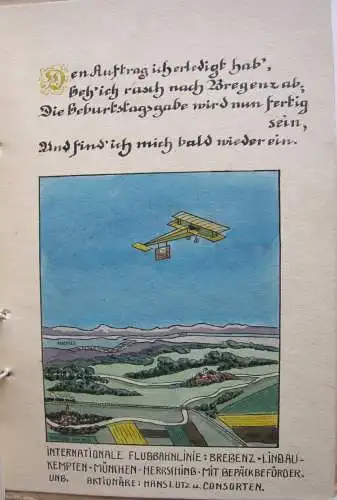 Den Auftrag ich erledigt hab',
Geh' ich rasch nach Bregenz ab;
Die Geburtstagsgabe wird nun fertig
sein,
Und find' ich mich bald wieder ein.
INTERNATIONALE FLUGBAHNLINIE: BREGENZ-LINDAU-
KEMPTEN-MÜNCHEN-HERRSCHING-MIT GEPÄCKBEFÖRDER-
UNG. AKTIONÄRE: HANS LUTZ u. CONSORTEN.